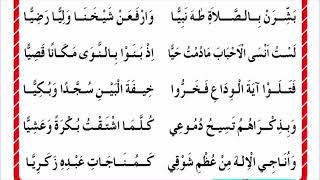 بَشِّرَنْ بِالصَّلَاةِ طٰهَ نَبِيًّا وَارْفَعَنْ شَيْخَنَا وَلِيًّا رَضِيًّا
لَسْتُ اَنْسَى الْاَحْبَابَ مَادُمْتُ حَيًّا اِذْ بَنَوْا بِالنَّوَى مَكَانًا قَصِيًّا
فَتَلَوْا آيَةَ الْوِدَاعِ فَخَرُّوا خِيفَةَ الْبَيْنِ سُجَّدًا وَبُكِيًّا
وَبِذِكْرَاهُمُ تَسِيحُ دُمُوعِي كُلَّمَا اشْتَقْتُ بُكْرَةً وَعَشِيًّا
وَاُنَاجِي الْاِلٰهَ مِنْ عُظْمِ شَوْقِي كَمُنَاجَاتِ عَبْدِهِ زَكَرِيَّا